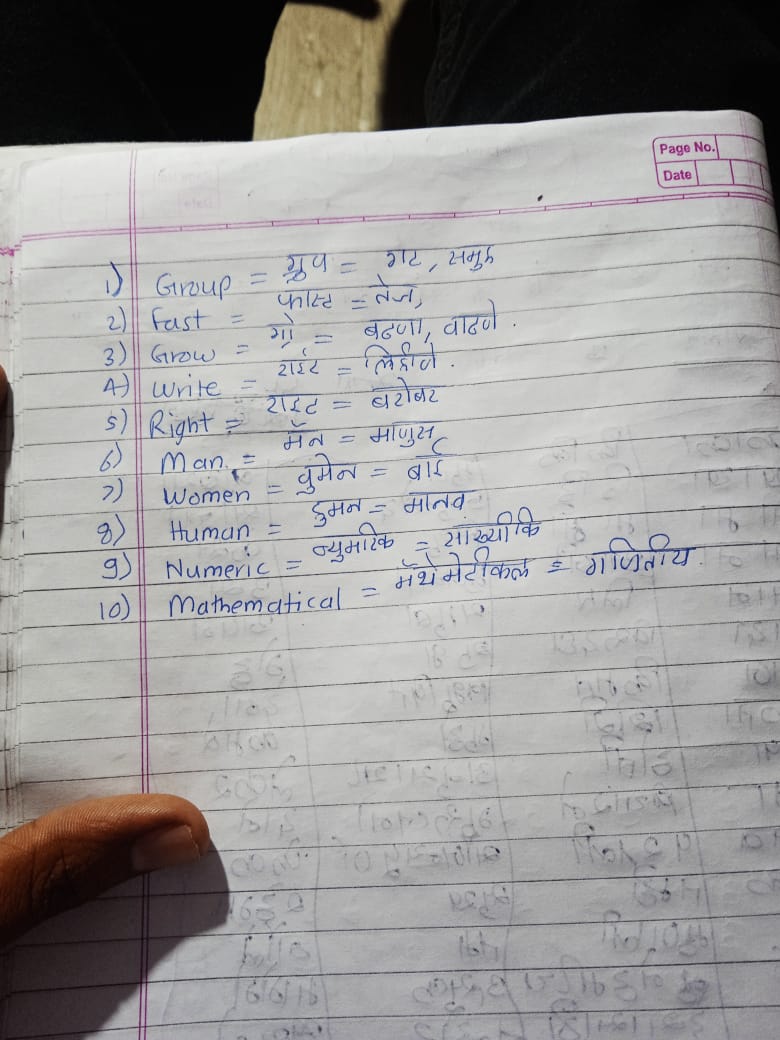 Page No.
Date
1) Group = ग्रुप = गट, समुह
2) Fast = फास्ट = तेज,
3) Grow = ग्रो = बढणा, वाढणे.
4) Write = राईट = लिहीणे.
5) Right = राइट = बरोबर
6) Man = मॅन = माणुस
7) Women = वुमेन = बाई
8) Human = हुमन = मानव
9) Numeric = न्युमरिक = सांख्यीकि
10) Mathematical = मॅथेमेटीकल = गणितीय.